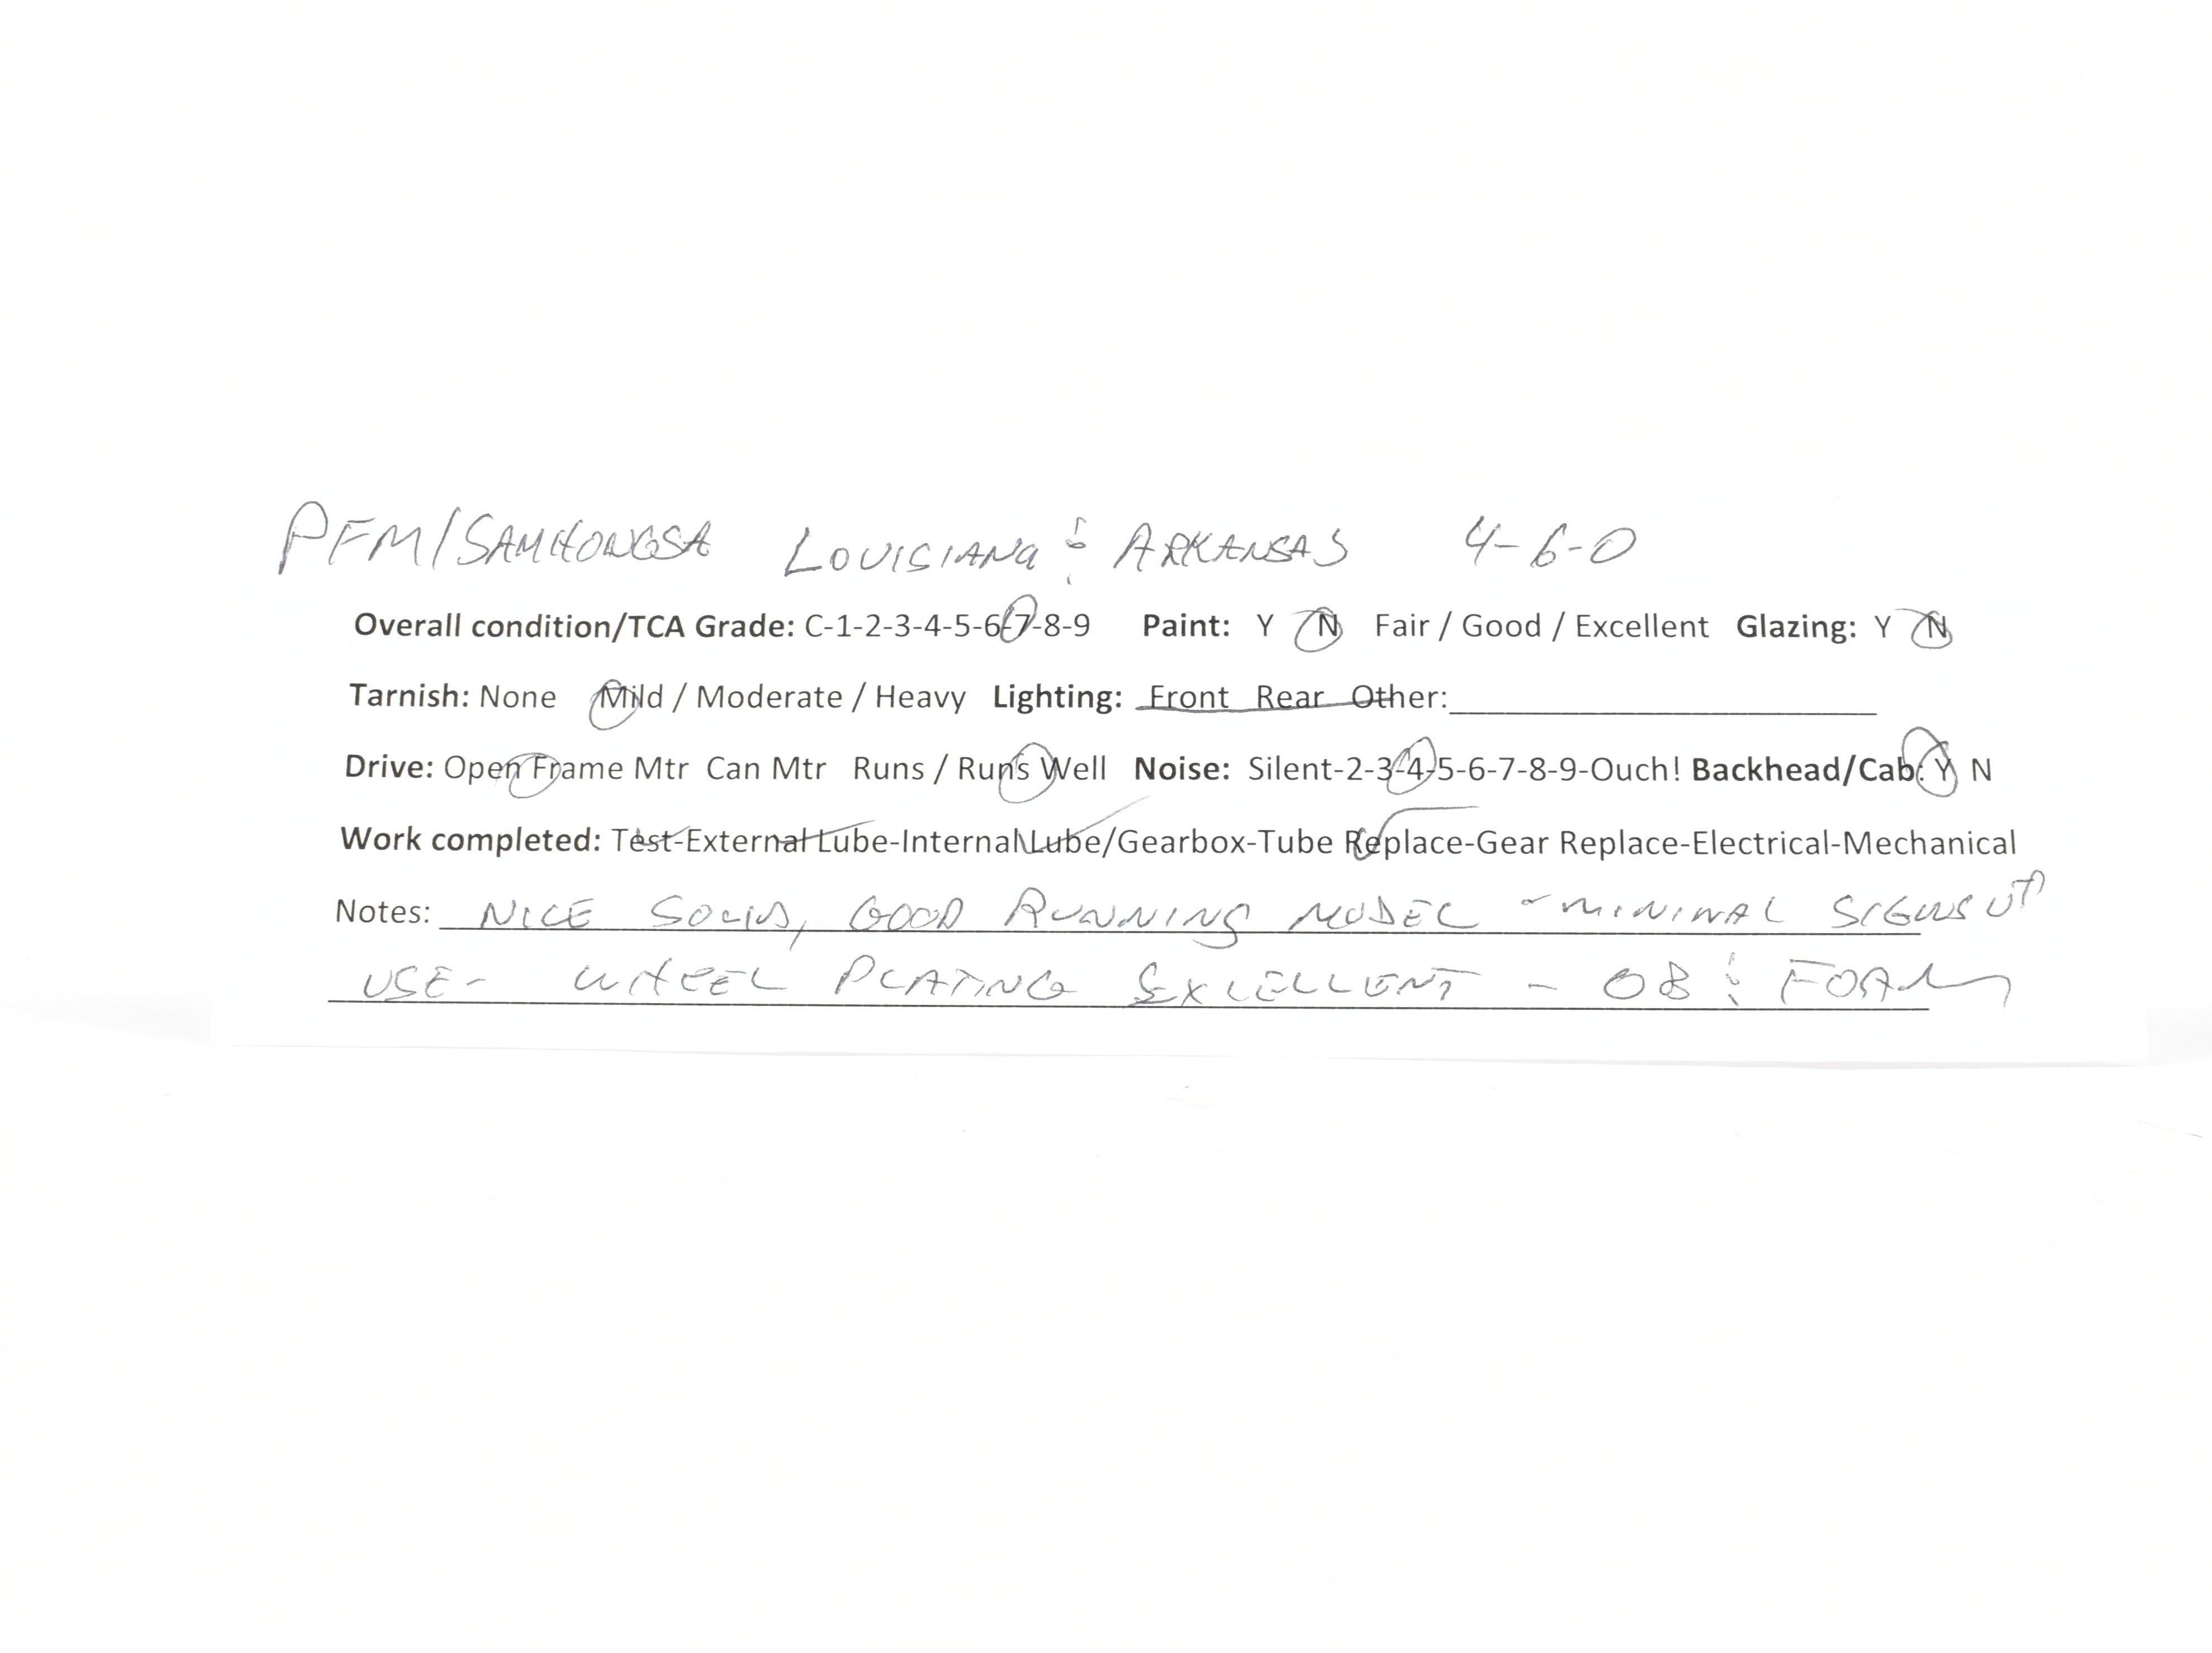 PFM/SAMHONGSA LOUISIANA & ARKANSAS 4-6-0
Overall condition/TCA Grade: C-1-2-3-4-5-6-7-8-9 Paint: Y N Fair / Good / Excellent Glazing: Y N
Tarnish: None Mild / Moderate / Heavy Lighting: Front Rear Other:
Drive: Open Frame Mtr Can Mtr Runs / Runs Well Noise: Silent-2-3-4-5-6-7-8-9-Ouch! Backhead/Cab: Y N
Work completed: Test-External Lube-Internal Lube/Gearbox-Tube Replace-Gear Replace-Electrical-Mechanical
Notes: NICE SOLID, GOOD RUNNING MODEL - MINIMAL SIGNS OF
USE - WHEEL PLATING EXCELLENT - OB & FOAM